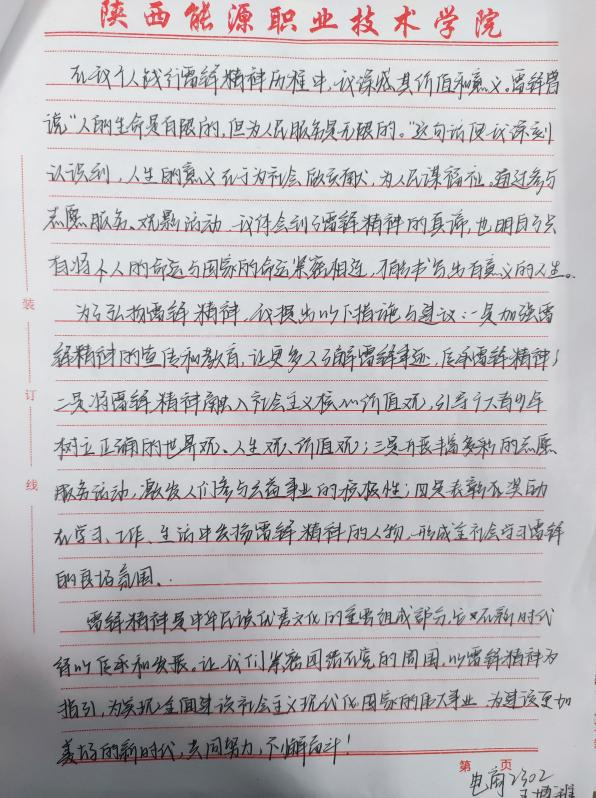 陕西能源职业技术学院
在我个人践行雷锋精神历程中,我深感其价值和意义。雷锋曾
说"人的生命是有限的,但为人民服务是无限的。"这句话使我深刻
认识到,人生的意义在于为社会做贡献,为人民谋福祉。通过参与
志愿服务、观影活动,我体会到了雷锋精神的真谛,也明白了只
有将个人的命运与国家的命运紧密相连,才能书写出有意义的人生。
为了弘扬雷锋精神,我提出以下措施与建议:一是加强雷
锋精神的宣传和教育,让更多人了解雷锋事迹,传承雷锋精神;
二是将雷锋精神融入社会主义核心价值观,引导广大青少年
树立正确的世界观、人生观、价值观;三是开展丰富多彩的志愿
服务活动,激发人们参与公益事业的积极性;四是表彰和奖励
在学习、工作、生活中发扬雷锋精神的人物,形成全社会学习雷锋
的良好氛围。
雷锋精神是中华民族优秀文化的重要组成部分,应在新时代
得以传承和发展。让我们紧密团结在党的周围,以雷锋精神为
指引,为实现全面建设社会主义现代化国家的伟大事业、为建设更加
美好的新时代,共同努力,不懈奋斗!
装
订
线
第 页
电商2302
王博